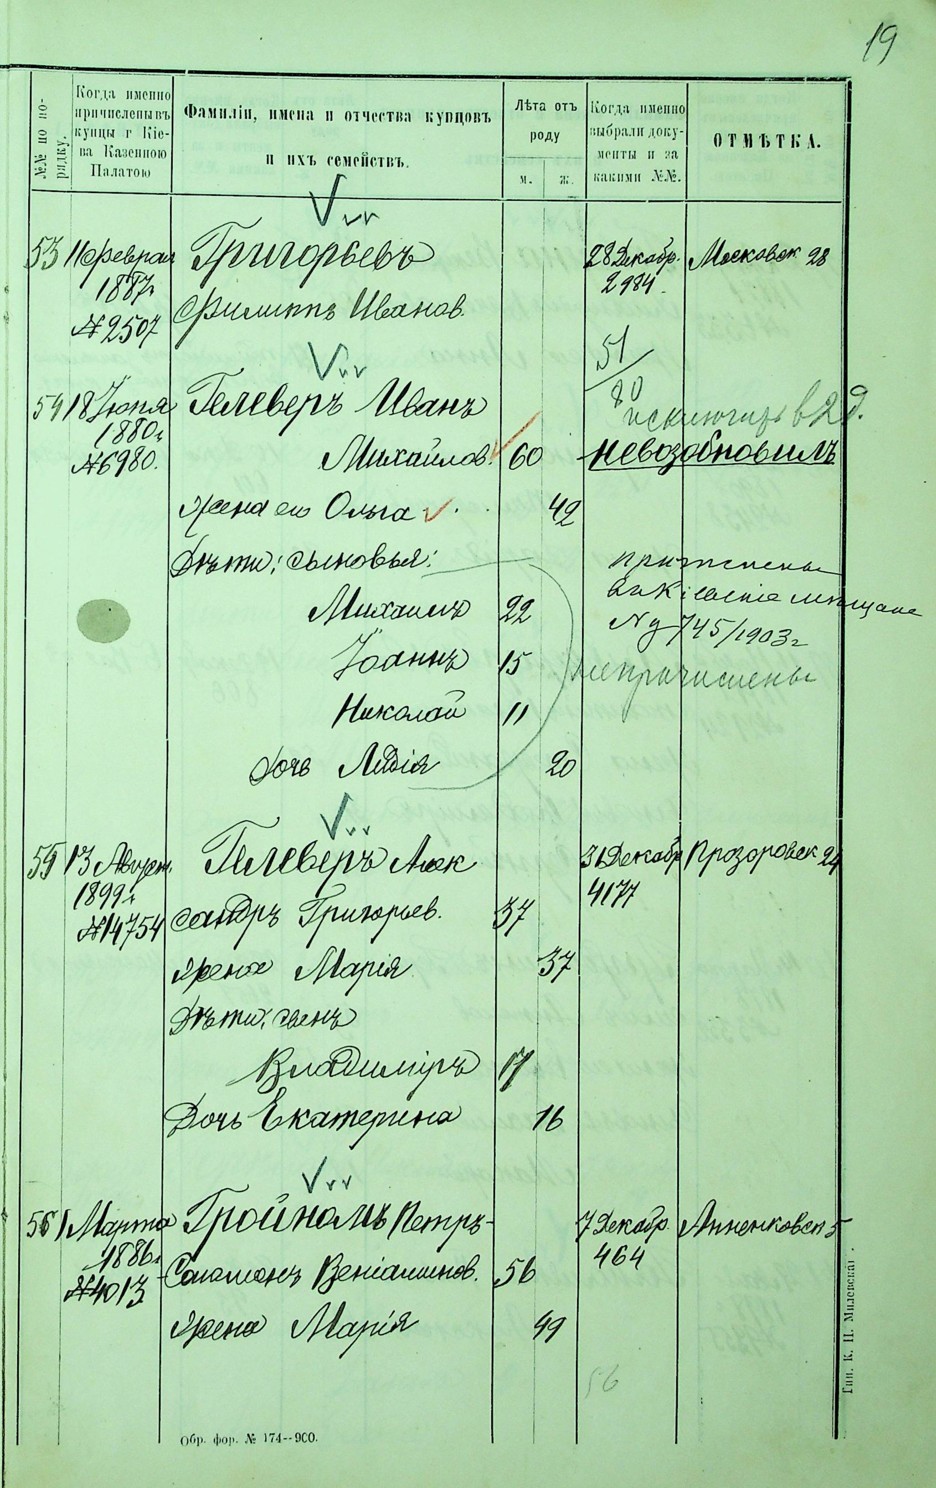 19
№№ по порядку.
Когда именно причислены въ купцы г Кіева Казенною Палатою
Фамиліи, имена и отчества купцовъ и ихъ семействъ.
Лѣта отъ роду
м.
ж.
Когда именно выбрали документы и за какими №№.
ОТМѢТКА.
53 11 Феврал Григорьевъ 28 Декабр. Московск 28
1887г. 2984.
№2507 Филиппъ Иванов.
51
80
54 18 Іюня Гелеверъ Иванъ исключить в 2 д.
1880г.
№6980. Михайлов. 60 невозобновилъ
Жена его Ольга 42
Дѣти: сыновья:
Михаилъ 22
№ 745/1903 г
Іоаннъ 15 непричислены
Николай 11
Дочь Лидія 20
55 13 Август. Гелеверъ Алек 31 Декабр Прозоровск 24
1899г. 4177
№14754 сандръ Григорьев. 37
Жена Марія 37
Дѣти: сынъ
Владиміръ 17
Дочь Екатерина 16
56 1 Марта Тройномъ Петръ- 7 Декабр. Анненковск 5
1886г. 464
№4013 Соломонъ Веніаминов. 56
Жена Марія 49
56
Тип. К. Н. Милевскаг.
Обр. фор. № 174--900.